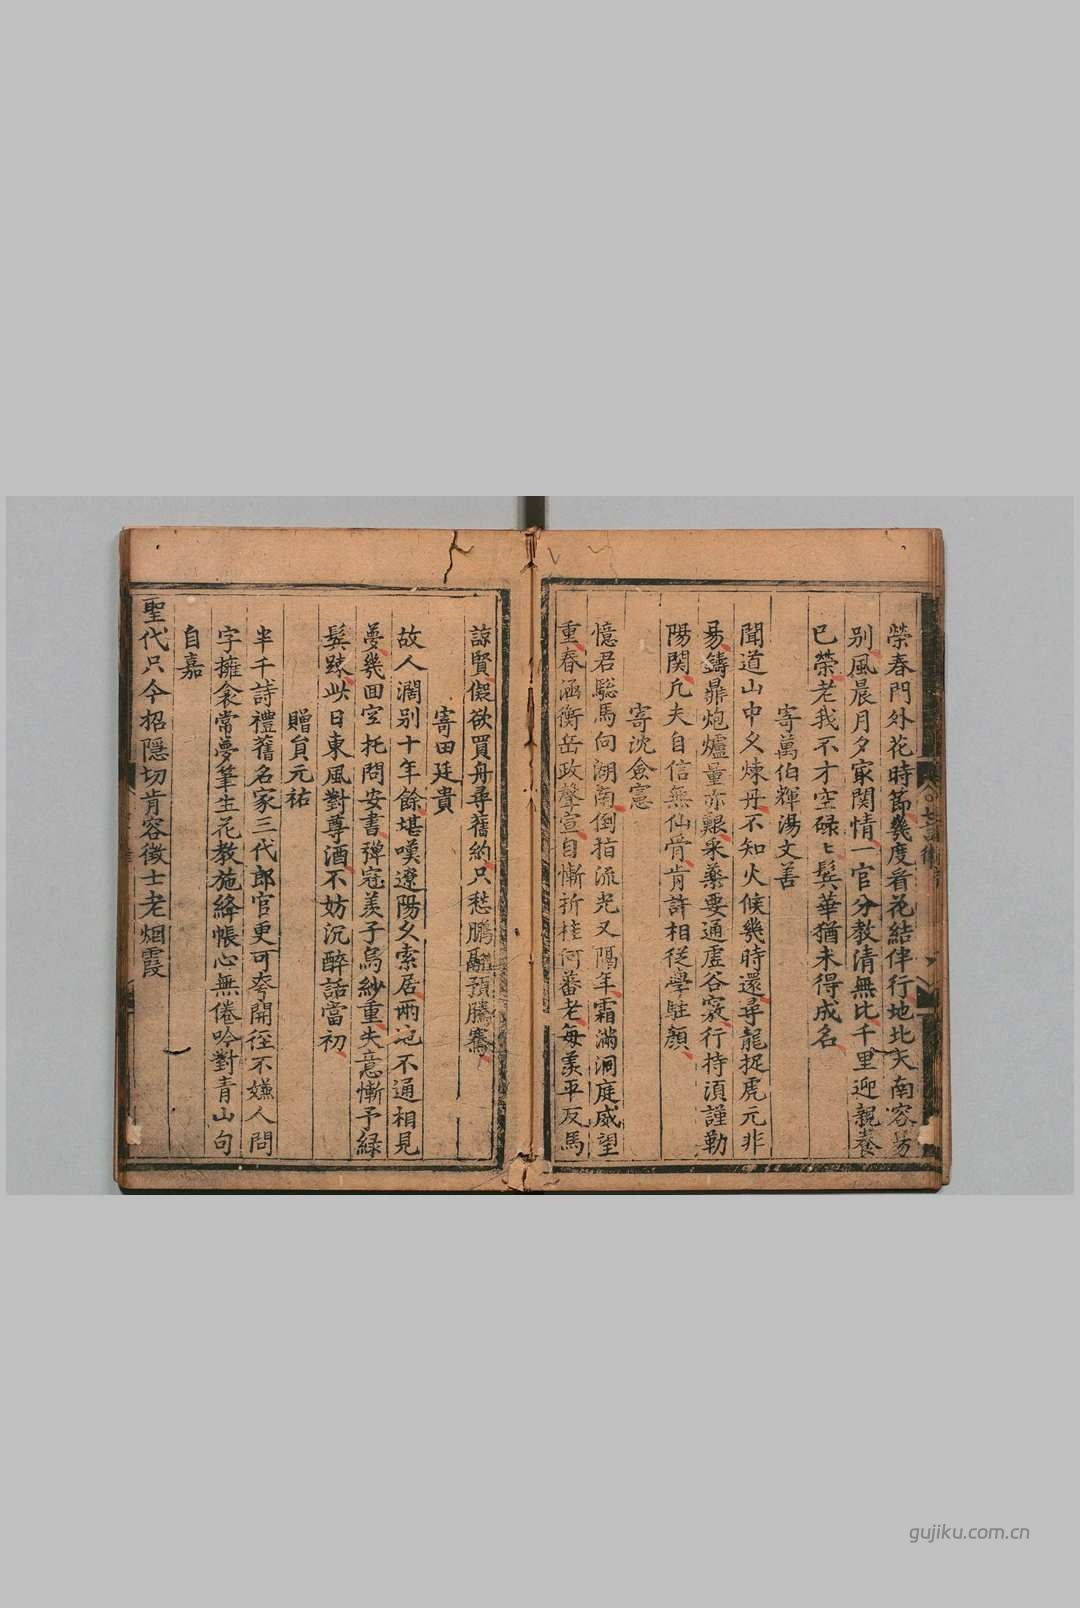 榮春門外花時節幾度看花結伴行地北天南容易
别風晨月夕最関情一官分教清無比千里迎親養
已榮老我不才空碌々鬂華猶未得成名
寄萬伯輝湯文善
聞道山中久煉丹不知火候幾時還尋龍捉虎元非
易鑄鼎炮爐量亦艱采藥要通虚谷竅行持湏謹勒
陽関凢夫自信無仙骨肯許相從學駐顔
寄沈僉憲
憶君驄馬向湖南倒指流光又隔年霜滿洞庭威望
重春涵衡岳政聲宣自慚折桂何蕃老每羨平反馬
諒賢儗欲買舟尋舊約只愁鵬翮預騰騫
寄田廷貴
故人濶别十年餘堪嘆遼陽久索居兩地不通相見
夢幾回空托問安書彈冠羨子烏紗重失意慚予緑
鬂踈此日東風對尊酒不妨沉醉話當初
贈貟元祐
半千詩禮舊名家三代郎官更可夸開徑不嫌人問
字擁衾常夢筆生花教施絳帳心無倦吟對青山句
自嘉
聖代只今招隱切肯容徵士老烟霞
gujiku.com.cn